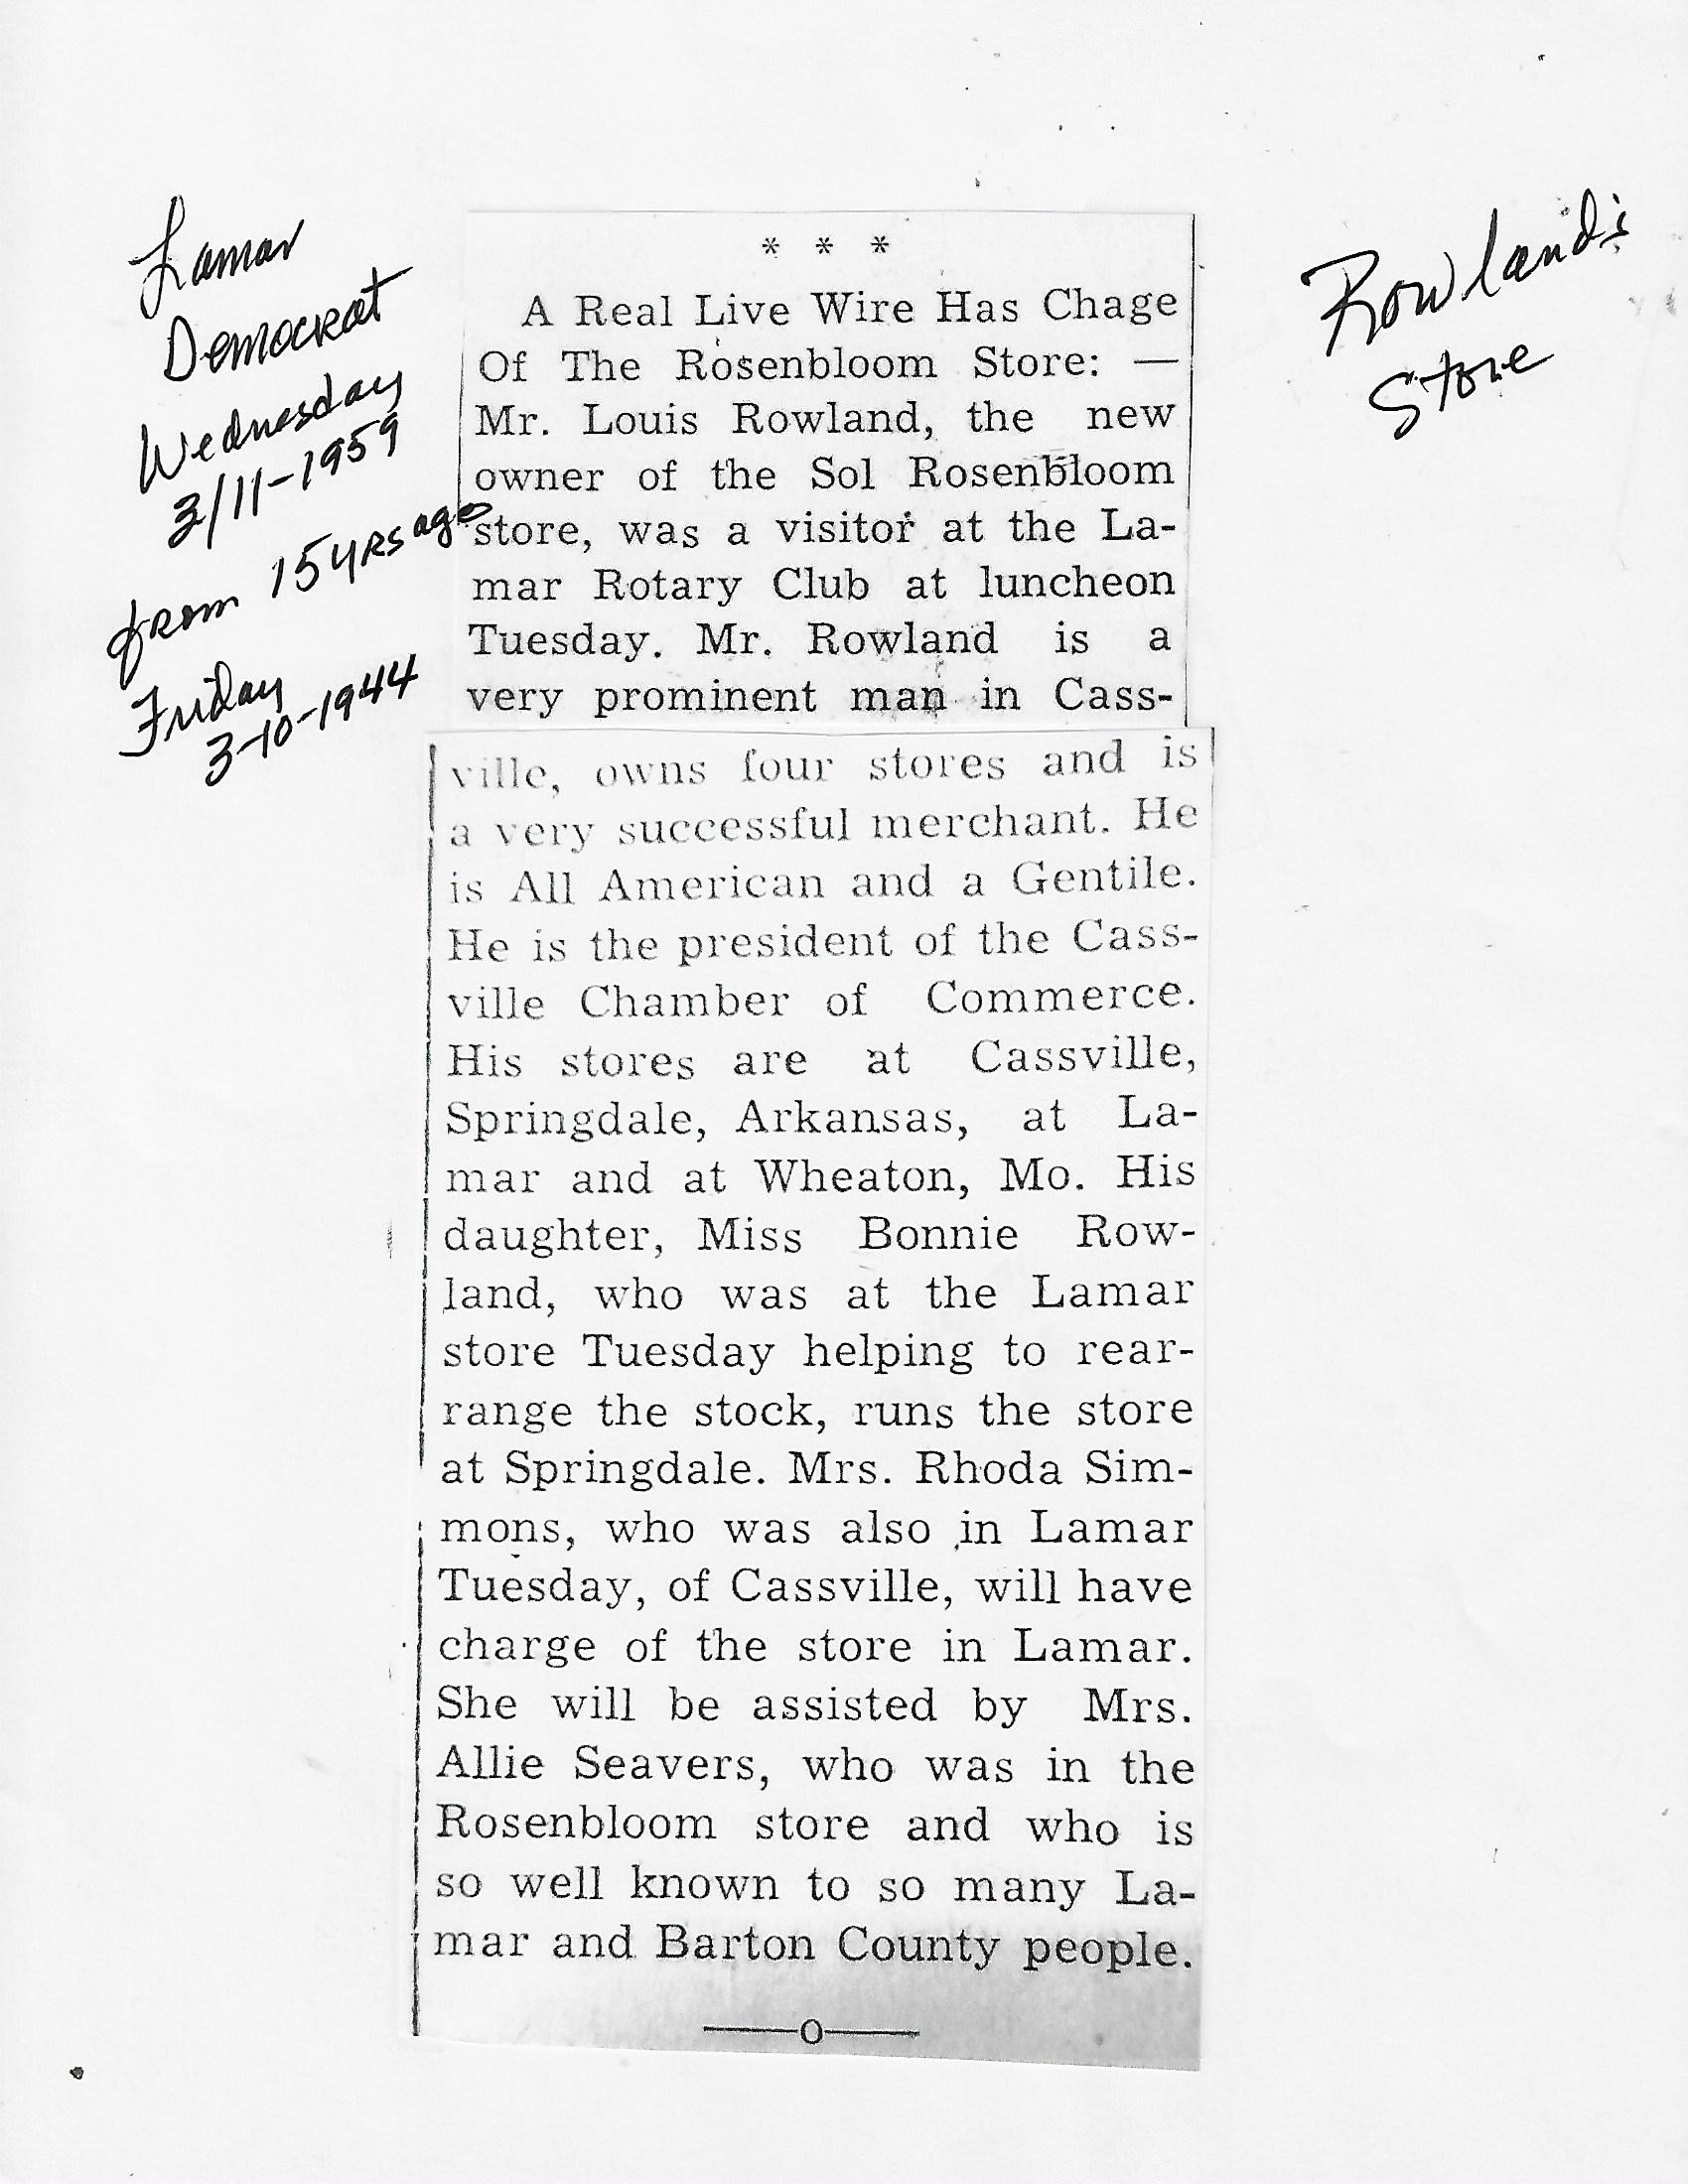 Lamar
Democrat
Wednesday
3/11-1959
from 15 yrs ago
Friday
3-10-1944
Rowland's
Store
* * *
A Real Live Wire Has Chage
Of The Rosenbloom Store: —
Mr. Louis Rowland, the new
owner of the Sol Rosenbloom
store, was a visitor at the La-
mar Rotary Club at luncheon
Tuesday. Mr. Rowland is a
very prominent man in Cass-
ville, owns four stores and is
a very successful merchant. He
is All American and a Gentile.
He is the president of the Cass-
ville Chamber of Commerce.
His stores are at Cassville,
Springdale, Arkansas, at La-
mar and at Wheaton, Mo. His
daughter, Miss Bonnie Row-
land, who was at the Lamar
store Tuesday helping to rear-
range the stock, runs the store
at Springdale. Mrs. Rhoda Sim-
mons, who was also in Lamar
Tuesday, of Cassville, will have
charge of the store in Lamar.
She will be assisted by Mrs.
Allie Seavers, who was in the
Rosenbloom store and who is
so well known to so many La-
mar and Barton County people.
——O——